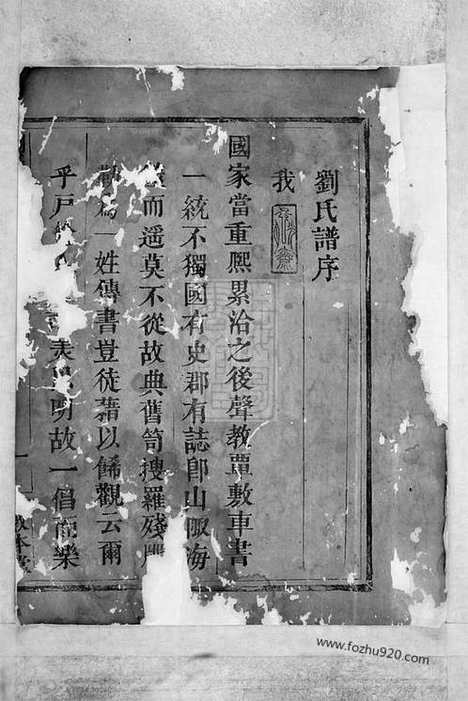 劉氏譜序
我
國家當重熙累洽之後聲教覃敷車書
一統不獨國有史郡有誌卽山陬海
而遥莫不從故典舊笥搜羅殘
爲一姓傳書豈徒藉以餙觀云爾
乎戸 明故一倡而樂
敦本堂
www.fozhu920.com